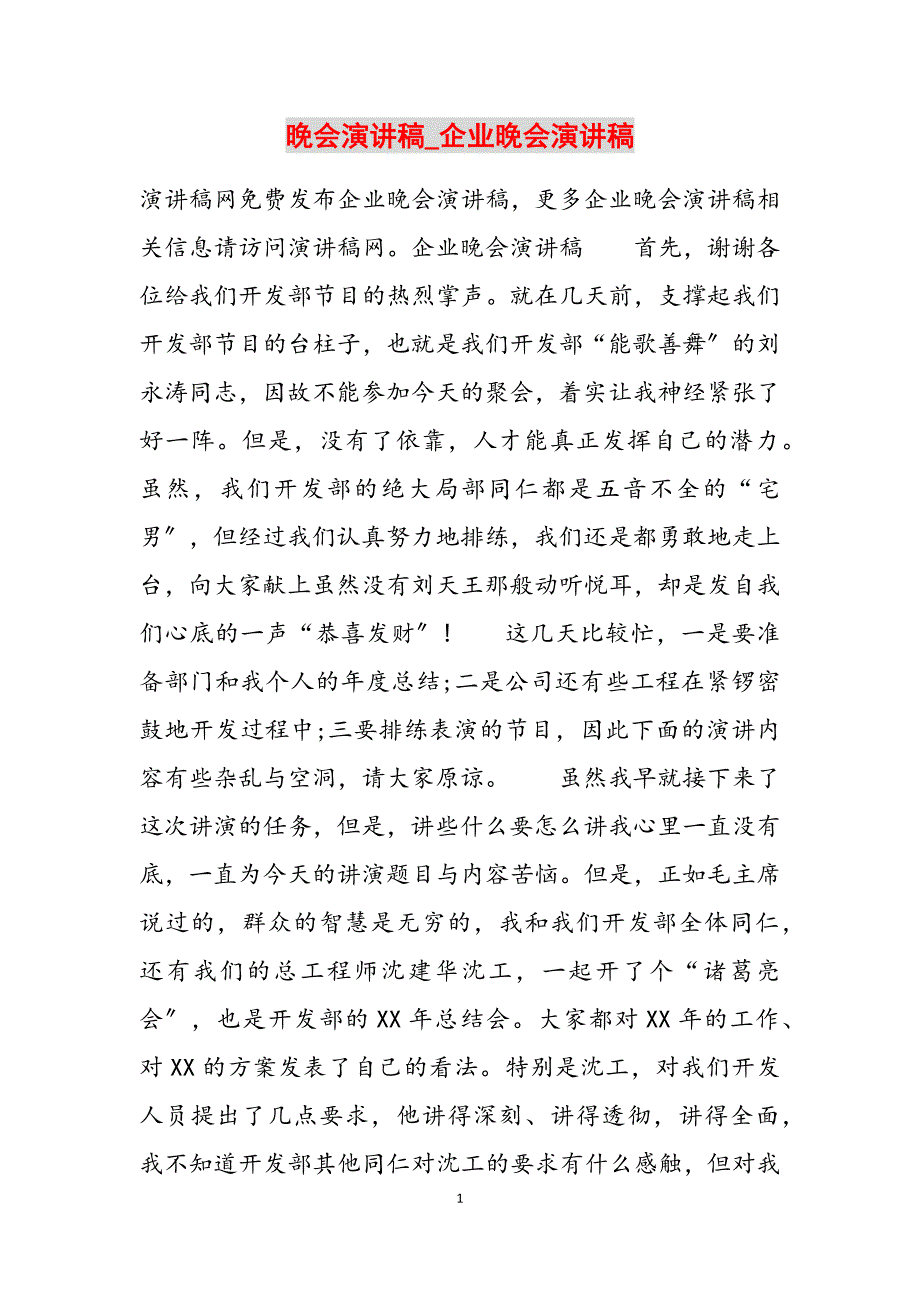 晚会演讲稿_企业晚会演讲稿
演讲稿网免费发布企业晚会演讲稿，更多企业晚会演讲稿相
关信息请访问演讲稿网。企业晚会演讲稿　　首先，谢谢各
位给我们开发部节目的热烈掌声。就在几天前，支撑起我们
开发部节目的台柱子，也就是我们开发部“能歌善舞〞的刘
永涛同志，因故不能参加今天的聚会，着实让我神经紧张了
好一阵。但是，没有了依靠，人才能真正发挥自己的潜力。
虽然，我们开发部的绝大局部同仁都是五音不全的“宅
男〞，但经过我们认真努力地排练，我们还是都勇敢地走上
台，向大家献上虽然没有刘天王那般动听悦耳，却是发自我
们心底的一声“恭喜发财〞！　　这几天比较忙，一是要准
备部门和我个人的年度总结;二是公司还有些工程在紧锣密
鼓地开发过程中;三要排练表演的节目，因此下面的演讲内
容有些杂乱与空洞，请大家原谅。　　虽然我早就接下来了
这次讲演的任务，但是，讲些什么要怎么讲我心里一直没有
底，一直为今天的讲演题目与内容苦恼。但是，正如毛主席
说过的，群众的智慧是无穷的，我和我们开发部全体同仁，
还有我们的总工程师沈建华沈工，一起开了个“诸葛亮
会〞，也是开发部的XX年总结会。大家都对XX年的工作、
对XX的方案发表了自己的看法。特别是沈工，对我们开发
人员提出了几点要求，他讲得深刻、讲得透彻，讲得全面，
我不知道开发部其他同仁对沈工的要求有什么感触，但对我
1